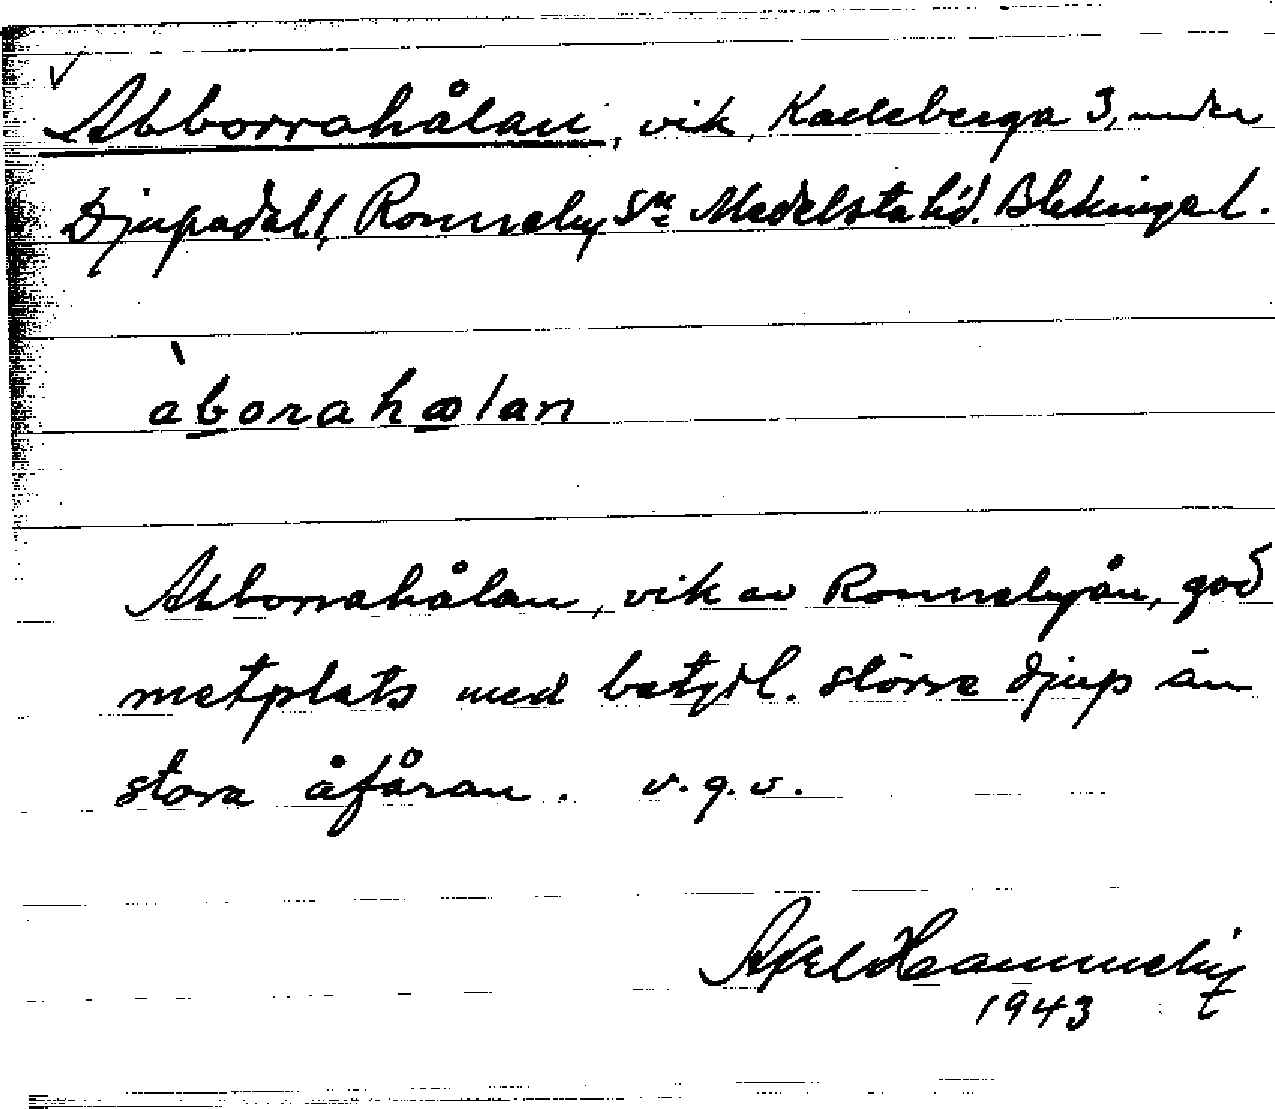 Abborrahålan, vik, Kalleberga 3, under
Djupadal, Ronneby Sn Medelsta hd. Blekinge l.
àborahålan
Abborrahålan, vik av Ronnebyån, god
metplats med betydl. större djup än
stora åfåran. v.g.v.
Axel Hammneby
1943 t